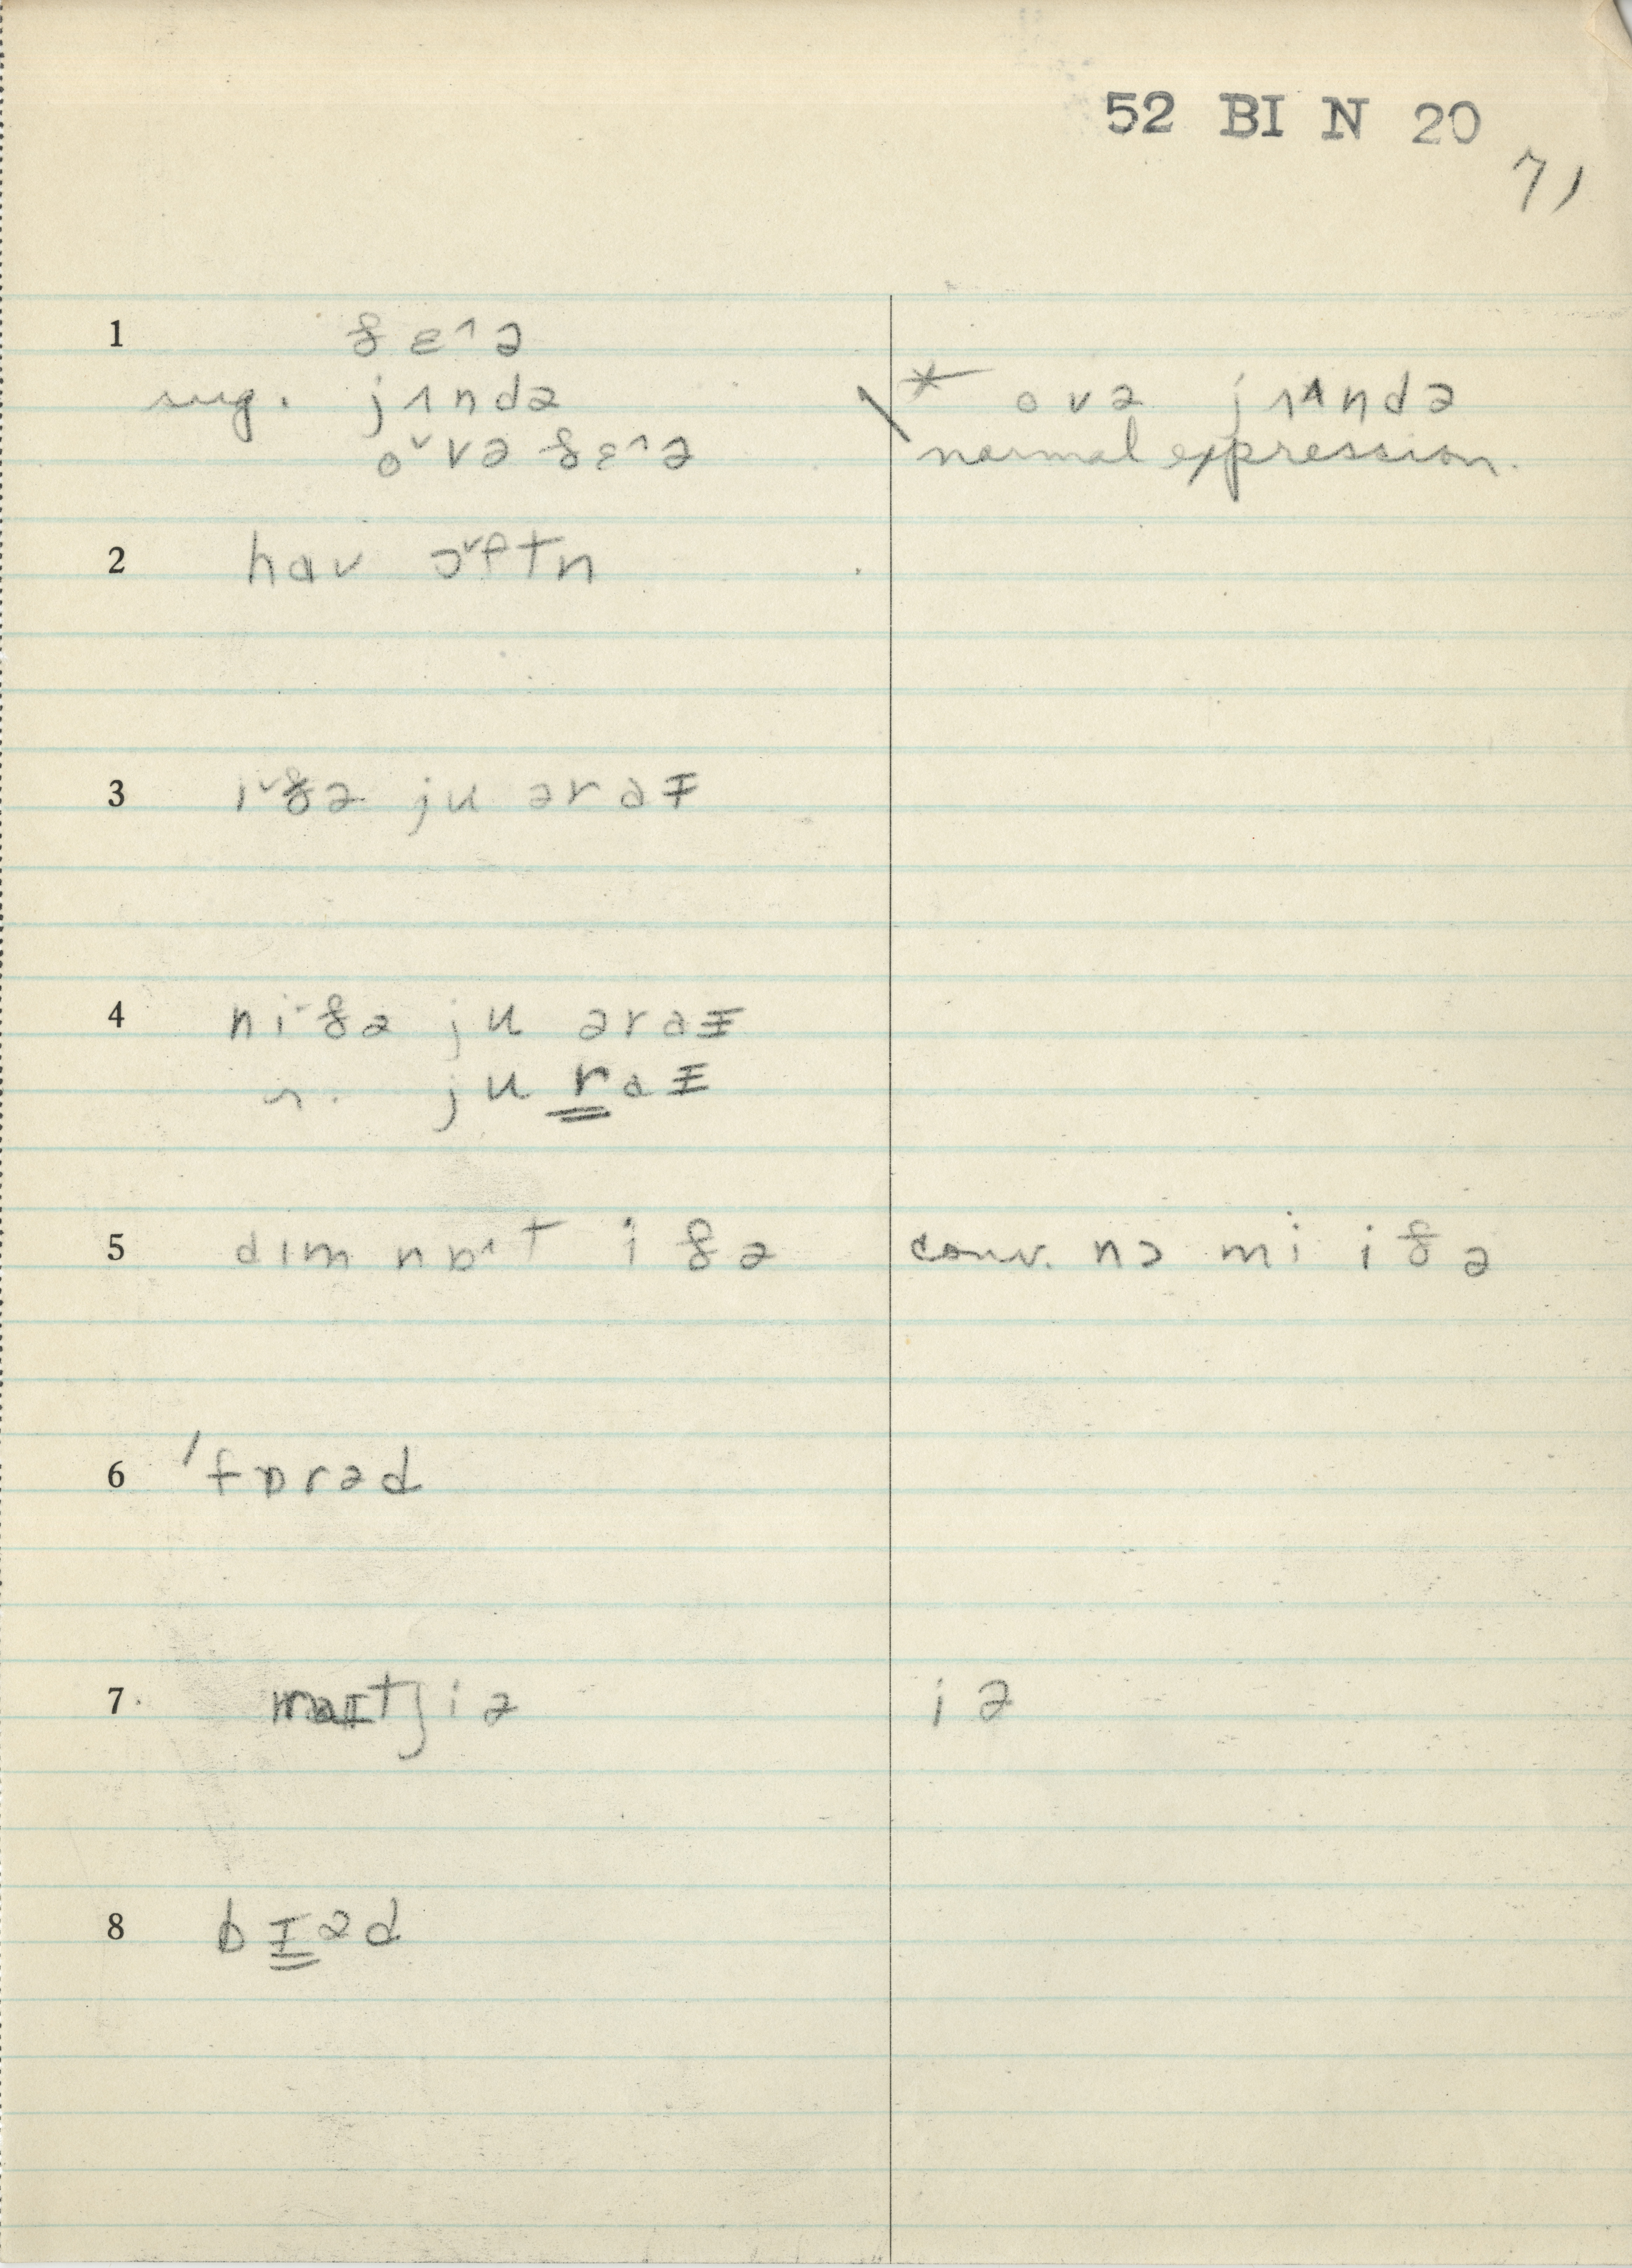 52 BI N 20
71
1 ðɛ˄ə
sug. jɪndə
o˅və ðɛ˄ə
* ovə jɪ˄ndə
normal expression.
2 hɑv ɔ˅ftn
3 i˅ðə ju ərɑɪ
4 ni˅ðə ju ərɑɪ
n. ju rɑɪ
5 dɪm nɒ˄t i ðə
conv. nɔ mi iðə
6 ˈfɒrəd
7. mɑɪtʃiə
iə
8 bɪəd